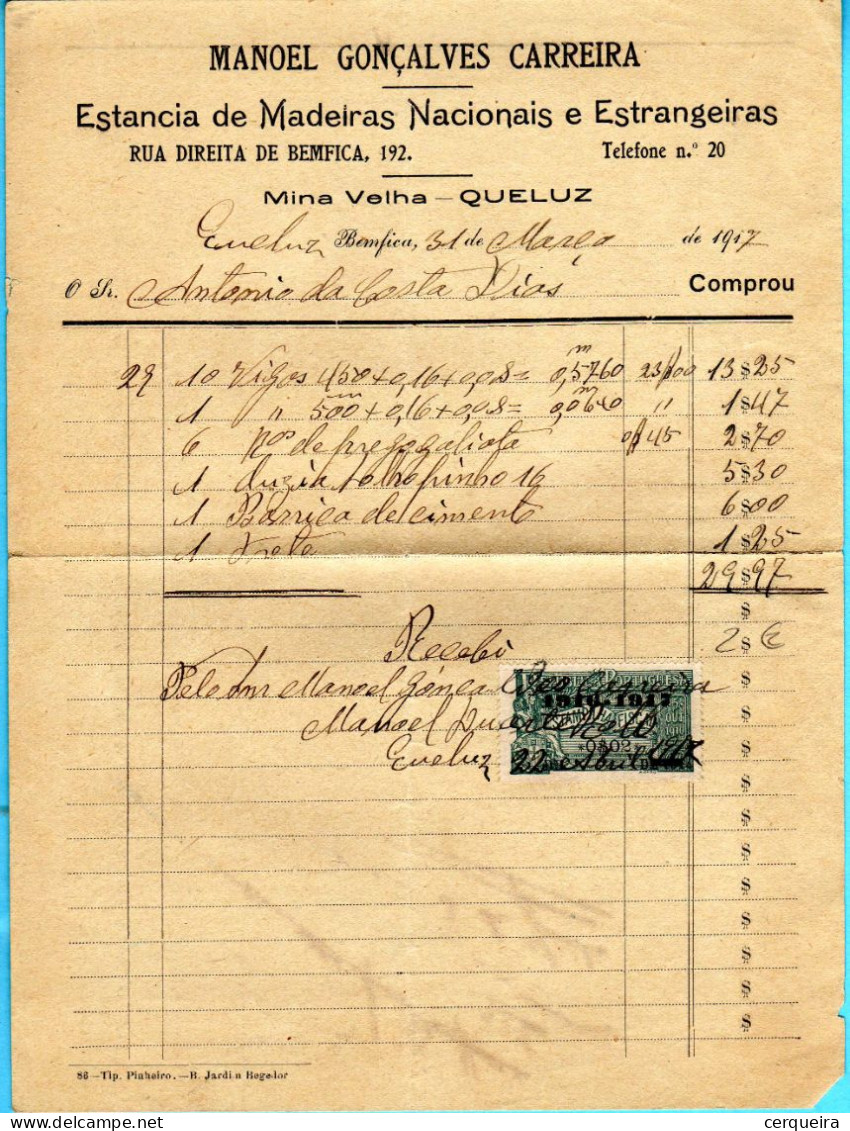 MANOEL GONÇALVES CARREIRA
Estancia de Madeiras Nacionais e Estrangeiras
RUA DIREITA DE BEMFICA, 192. Telefone n.º 20
Mina Velha — QUELUZ
Queluz Bemfica, 31 de Março de 1917
O Sr. Antonio da Costa Dias Comprou
29 10 Vigas 450+0,16+0,08= 0,5760 23$00 13$25
1 " 500+0,16+0,08= 0,0640 " 1$47
6 de prego galiota 0$45 2$70
1 duzia pinho 16 5$30
1 Barrica de cimento 6$00
1 Frete 1$25
29$97
Recebi
2 €
Pelo Snr Manoel Gonçalves Carreira
1916-1917
Manoel Duarte
ESTAMPILHA FISCAL
Queluz 22 Abril 1917
86 — Tip. Pinheiro. — R. Jardim Regedor
cerqueira